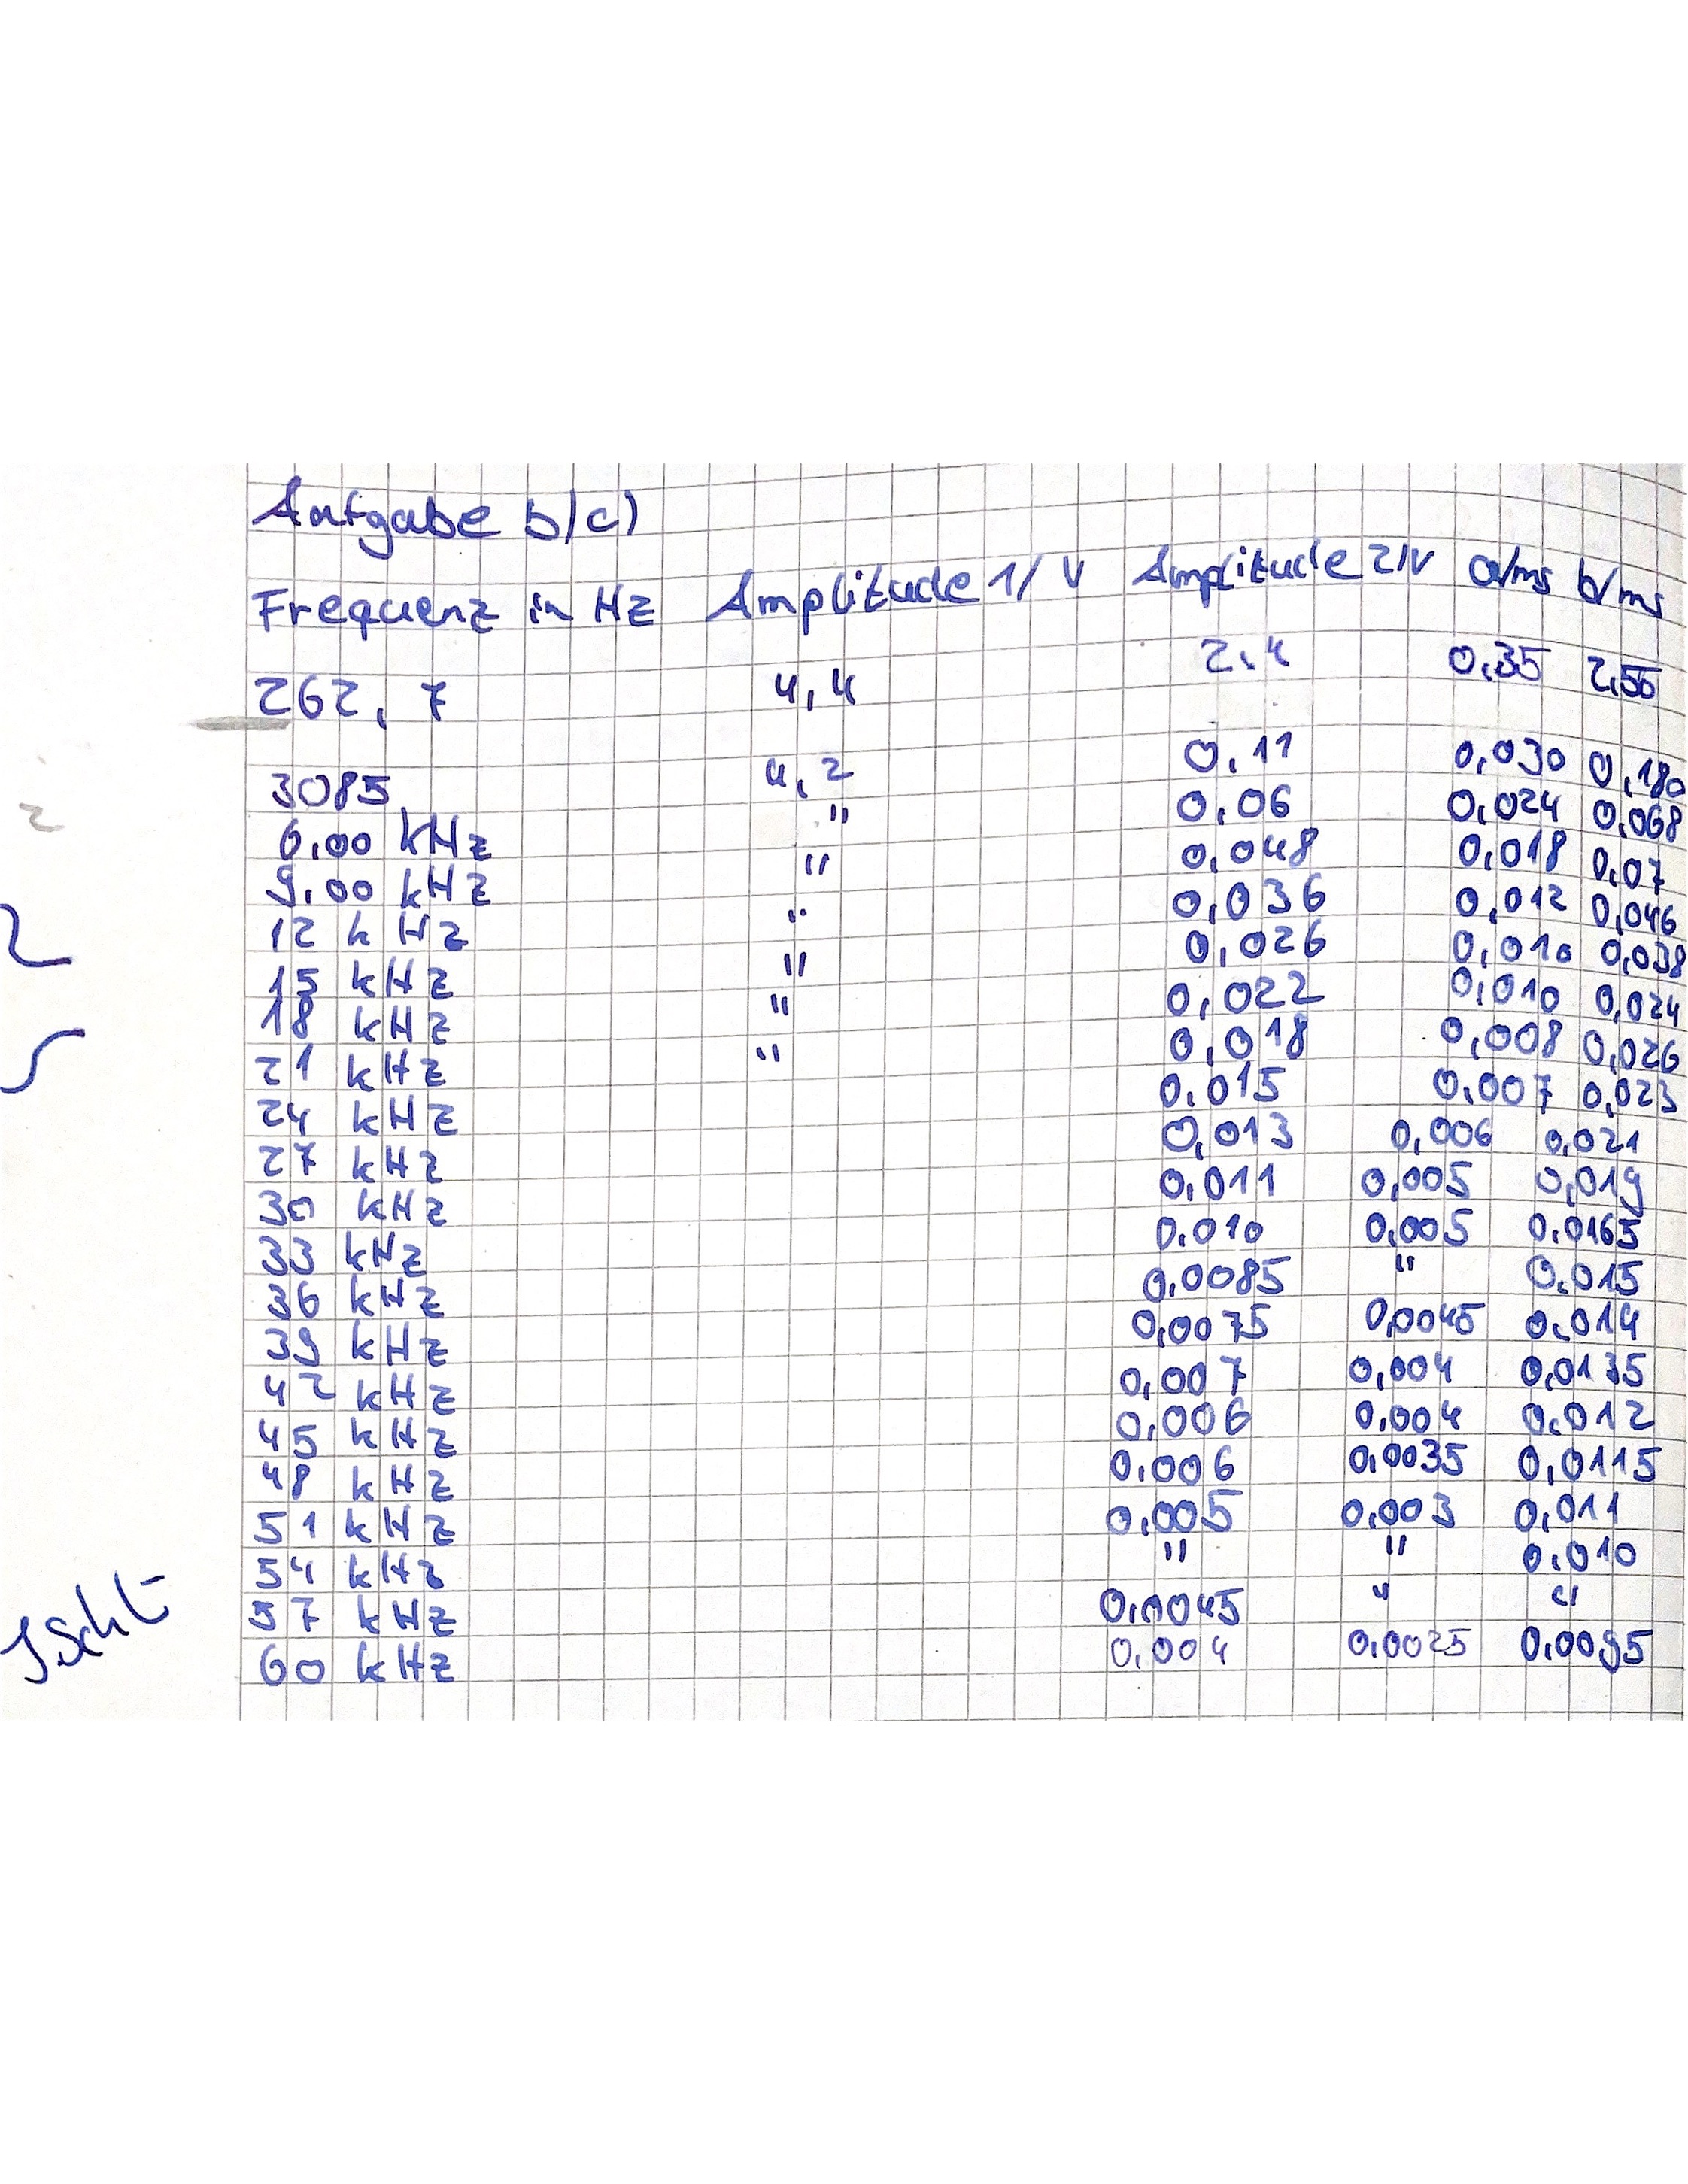 Aufgabe b/c)
Frequenz in Hz Amplitude 1/V Amplitude 2/V a/ms b/ms
262,7 4,4 2,4 0,35 2,55
3085 4,2 0,11 0,030 0,180
6,00 kHz " 0,06 0,024 0,068
9,00 kHz " 0,048 0,018 0,07
12 kHz " 0,036 0,012 0,046
15 kHz " 0,026 0,010 0,038
18 kHz " 0,022 0,010 0,024
21 kHz " 0,018 0,008 0,026
24 kHz 0,015 0,007 0,023
27 kHz 0,013 0,006 0,021
30 kHz 0,011 0,005 0,019
33 kHz 0,010 0,005 0,0165
36 kHz 0,0085 " 0,015
39 kHz 0,0075 0,0045 0,014
42 kHz 0,007 0,004 0,0135
45 kHz 0,006 0,004 0,012
48 kHz 0,006 0,0035 0,0115
51 kHz 0,005 0,003 0,011
54 kHz " " 0,010
57 kHz 0,0045 " "
60 kHz 0,004 0,0025 0,0095